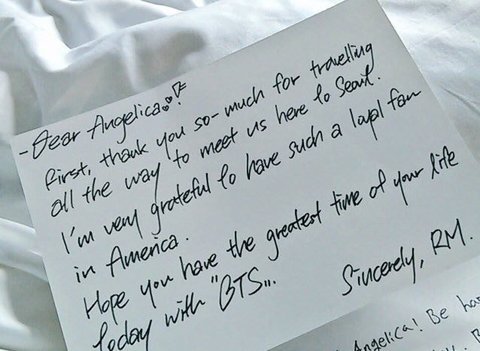 -Dear Angelica!
first, thank you so-much for travelling
all the way to meet us here to Seoul.
I'm very grateful to have such a loyal fan
in America.
Hope you have the greatest time of your life
today with "BTS"..
Sincerely, RM.
Angelica! Be